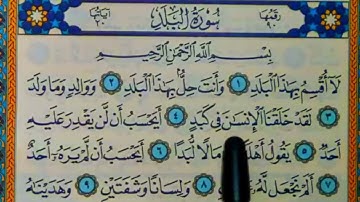 رقمها ٩٠
سورة البلد
آياتها ٢٠
بِسْمِ اللَّهِ الرَّحْمَنِ الرَّحِيمِ
لَا أُقْسِمُ بِهَذَا الْبَلَدِ ١ وَأَنتَ حِلٌّ بِهَذَا الْبَلَدِ ٢ وَوَالِدٍ وَمَا وَلَدَ
٣ لَقَدْ خَلَقْنَا الْإِنسَانَ فِي كَبَدٍ ٤ أَيَحْسَبُ أَن لَّن يَقْدِرَ عَلَيْهِ
أَحَدٌ ٥ يَقُولُ مَالًا لُّبَدًا ٦ أَيَحْسَبُ أَن لَّمْ يَرَهُ أَحَدٌ
٧ أَلَمْ نَجْعَل لَّهُ ٨ وَلِسَانًا وَشَفَتَيْنِ ٩ وَهَدَيْنَاهُ